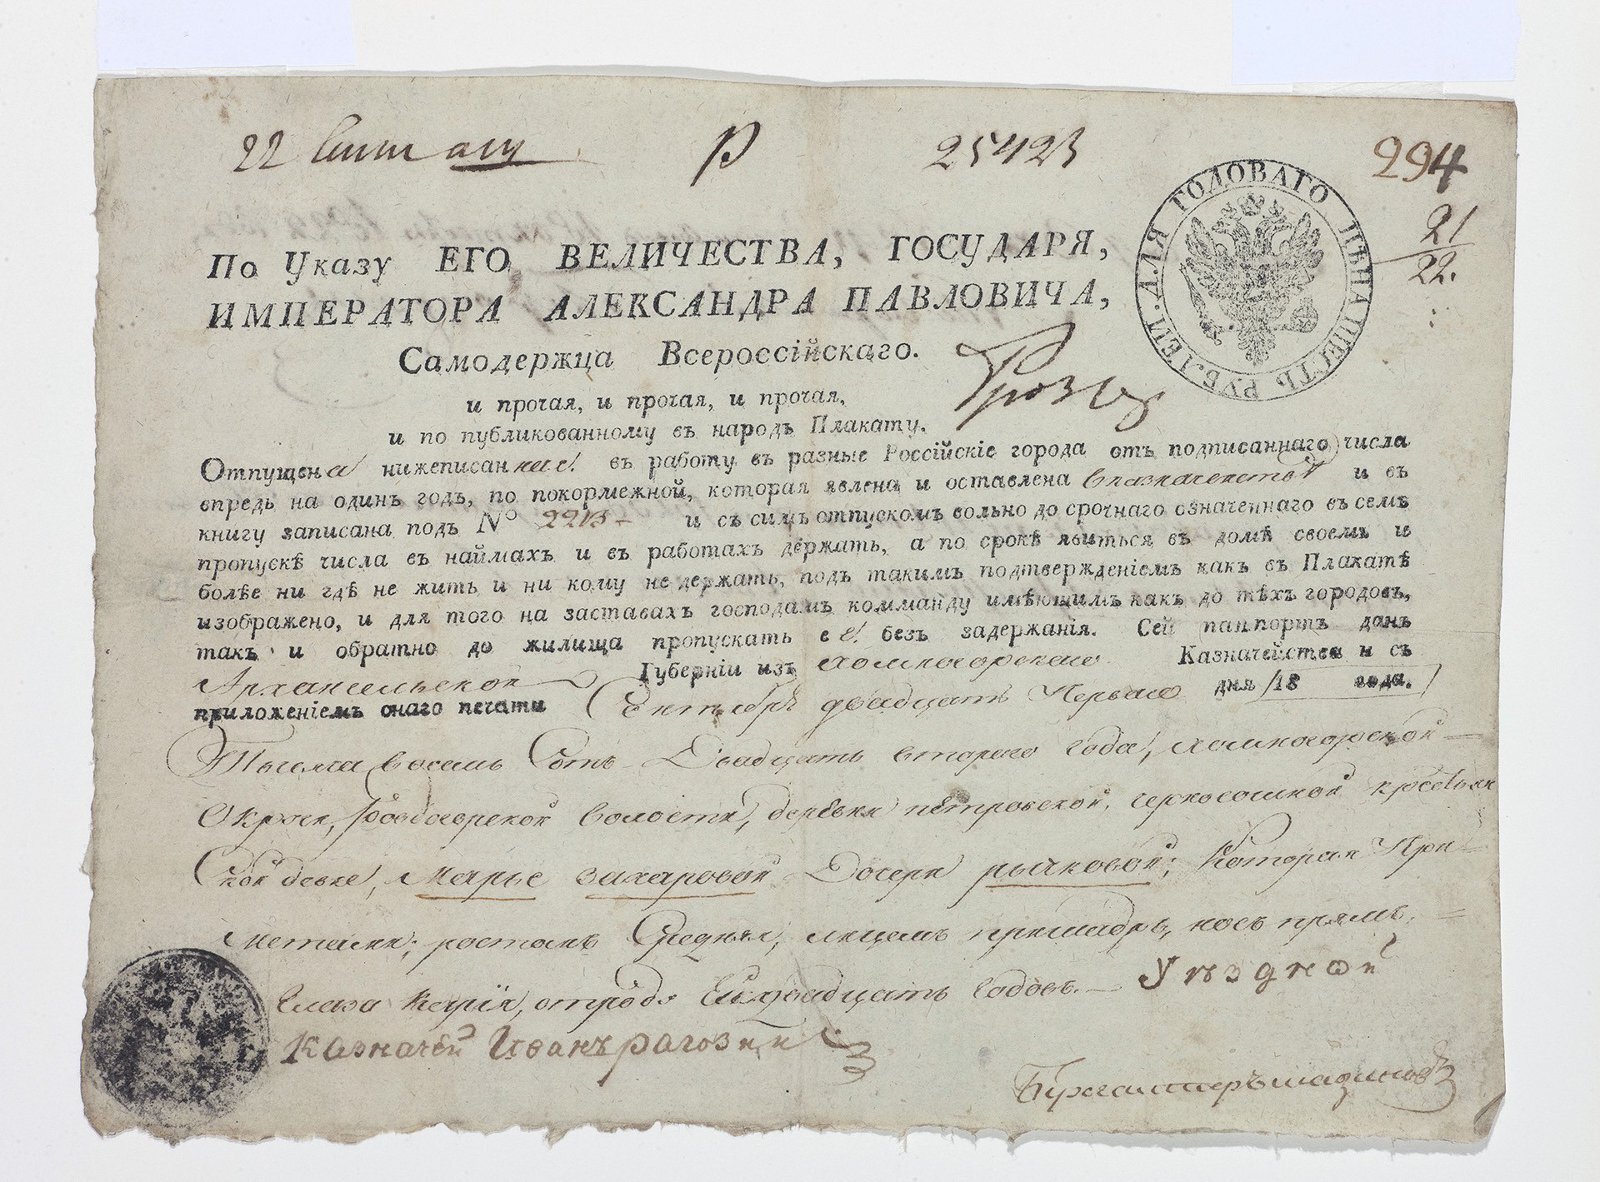 22 Сентяб P 25423 294
21
22.
ДЛЯ ГОДОВАГО ЦѢНА ШЕСТЬ РУБЛЕЙ
По Указу ЕГО ВЕЛИЧЕСТВА, ГОСУДАРЯ,
ИМПЕРАТОРА АЛЕКСАНДРА ПАВЛОВИЧА,
Самодержца Всероссійскаго.
и прочая, и прочая, и прочая,
и по публикованному въ народъ Плакату.
Отпущена нижеписанная въ работу въ разные Россійскіе города отъ подписаннаго числа
впредь на одинъ годъ, по покормежной, которая явлена и оставлена в казначействѣ и въ
книгу записана подъ N° 2213 и съ симъ отпускомъ вольно до срочнаго означеннаго въ семъ
пропускѣ числа въ наймахъ и въ работахъ держать, а по срокѣ явиться въ домѣ своемъ и
болѣе ни гдѣ не жить и ни кому не держать, подъ такимъ подтвержденіемъ какъ въ Плакатѣ
изображено, и для того на заставахъ господамъ комманду имѣющимъ какъ до тѣхъ городовъ,
такъ и обратно до жилища пропускать ее безъ задержанія. Сей пашпортъ данъ
Архангельской Губерніи изъ холмогорскаго Казначейства и съ
приложеніемъ онаго печати Сентября двадцать Перваго дня 18 года.
Тысяча восемь Сотъ Двадцать втораго года, холмогорской
Округи, волости, деревни петровской, черносошной кресьян
ской девке, Марье захаровой Дочери рыжковой; Которая При
метами; ростомъ Средняя, лицемъ прищадра, носъ прямъ,
Глаза Карія, отроду двадцать годовъ. Уѣздной
Казначей Иванъ рагозин
Бухгалтеръ